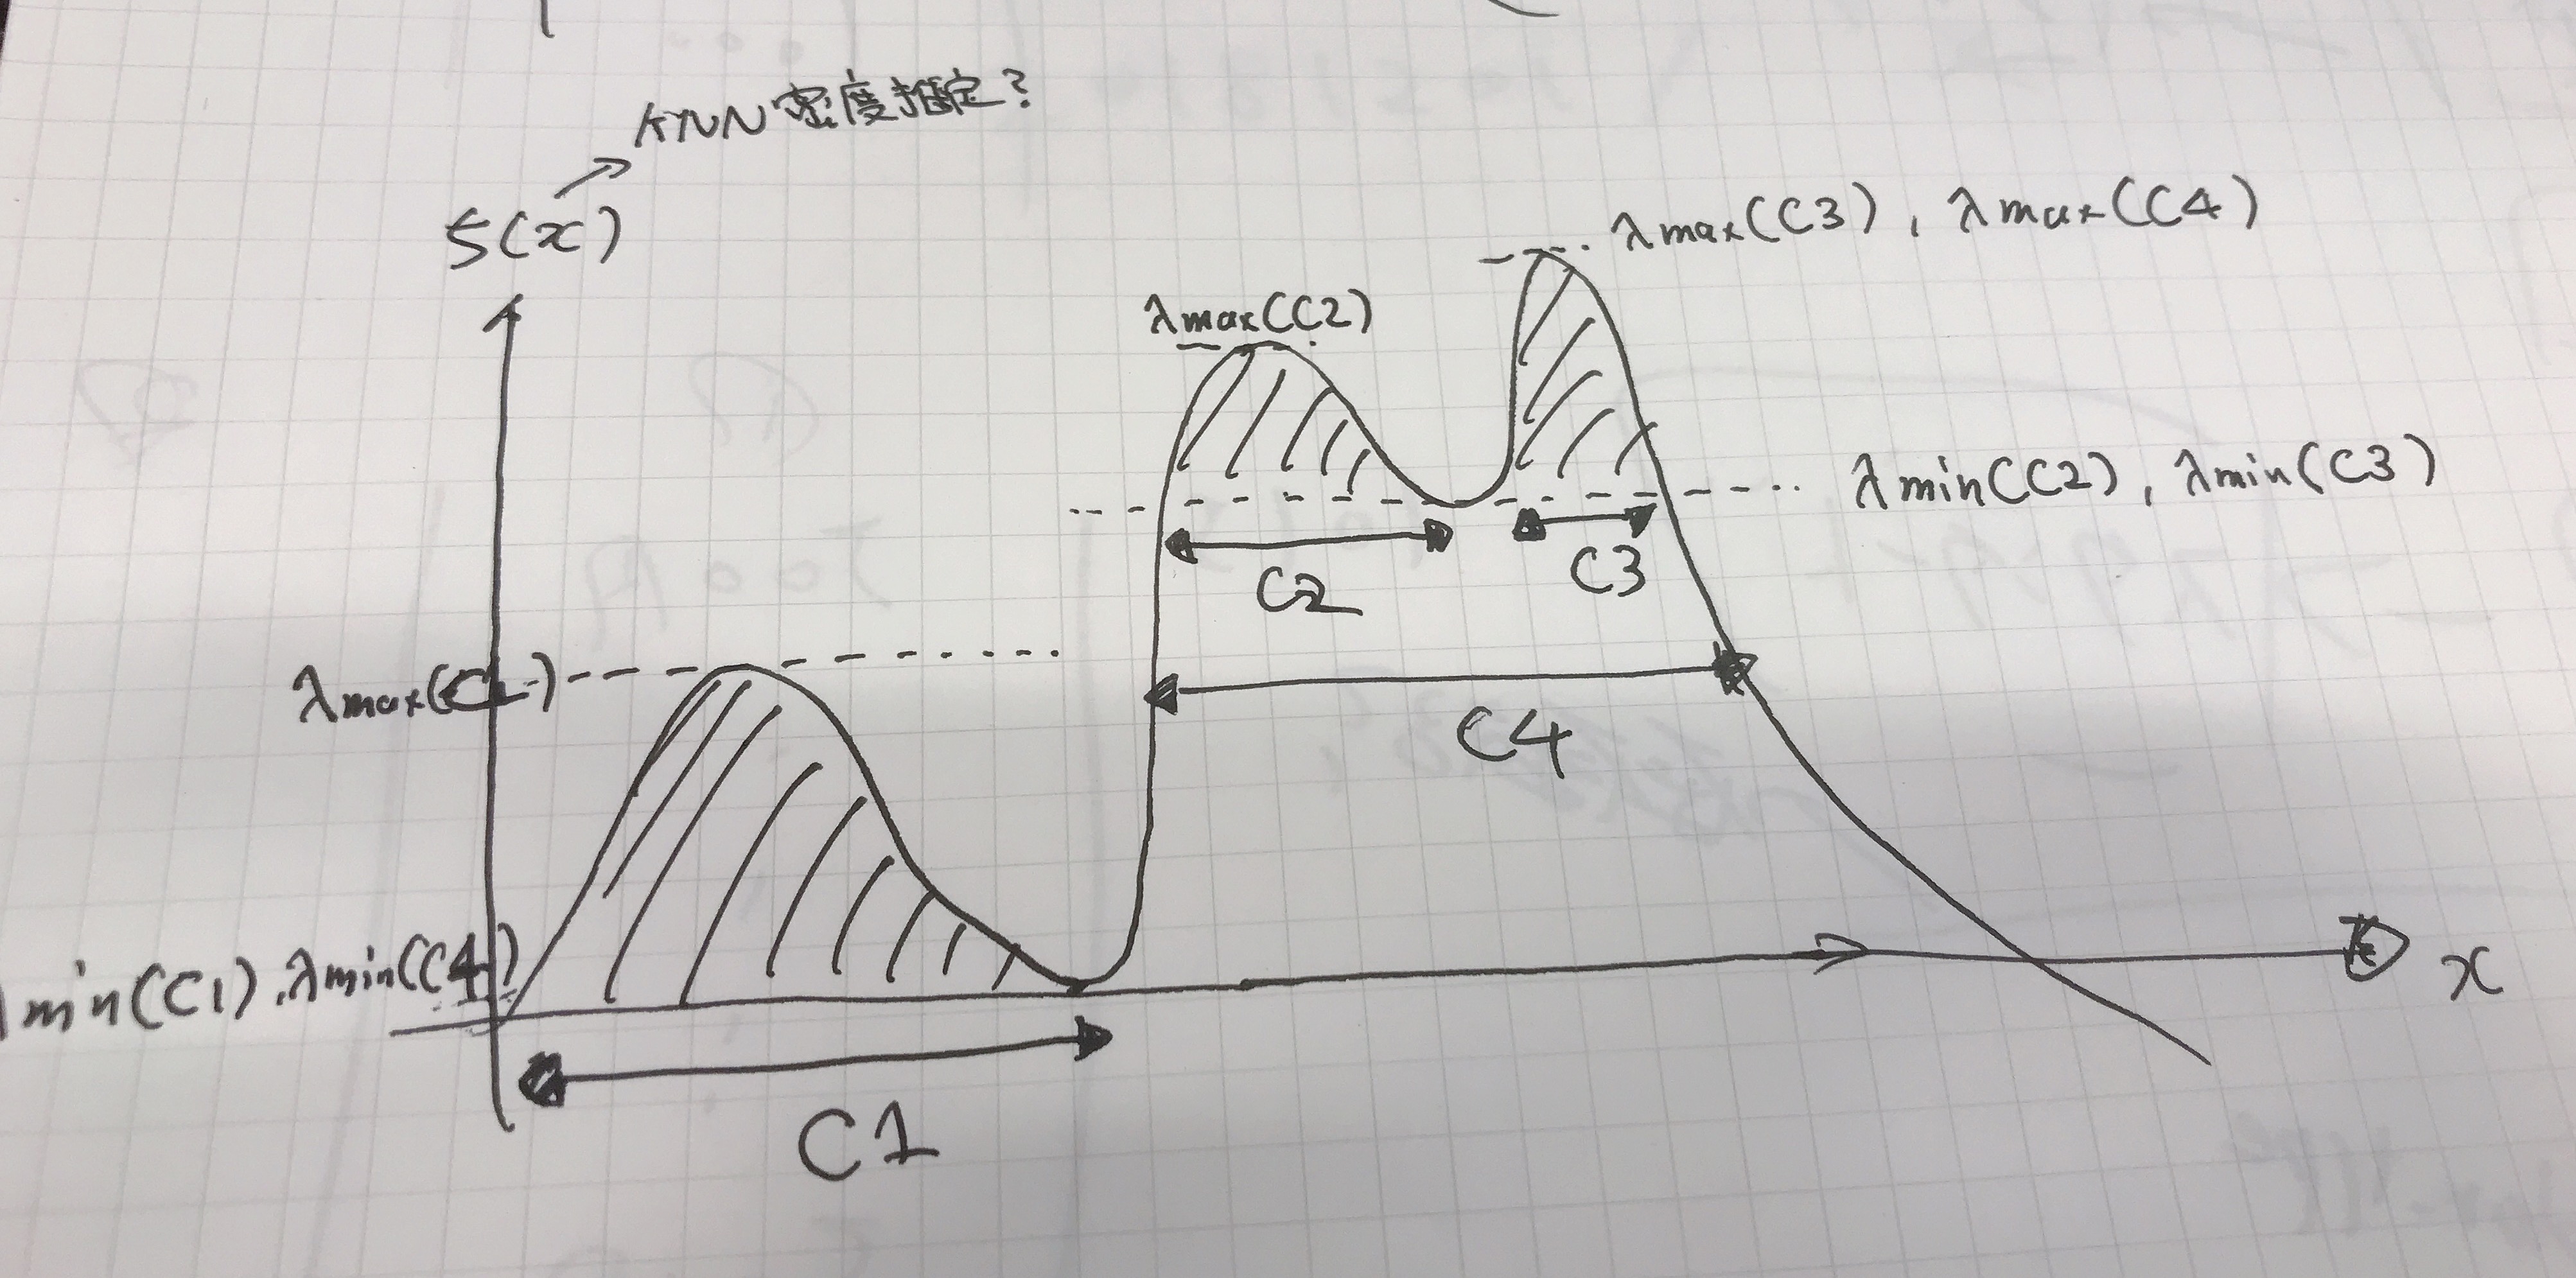 KNN密度推定?
f(x)
λmax(C3), λmax(C4)
λmax(C2)
λmin(C2), λmin(C3)
C2
C3
λmax(C1)
C4
min(C1), λmin(C4)
x
C1